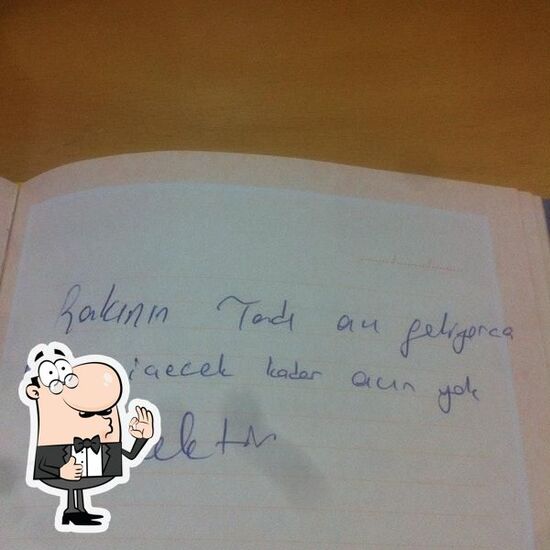 Rakının Tadı acı geliyorsa
içecek kadar acın yok